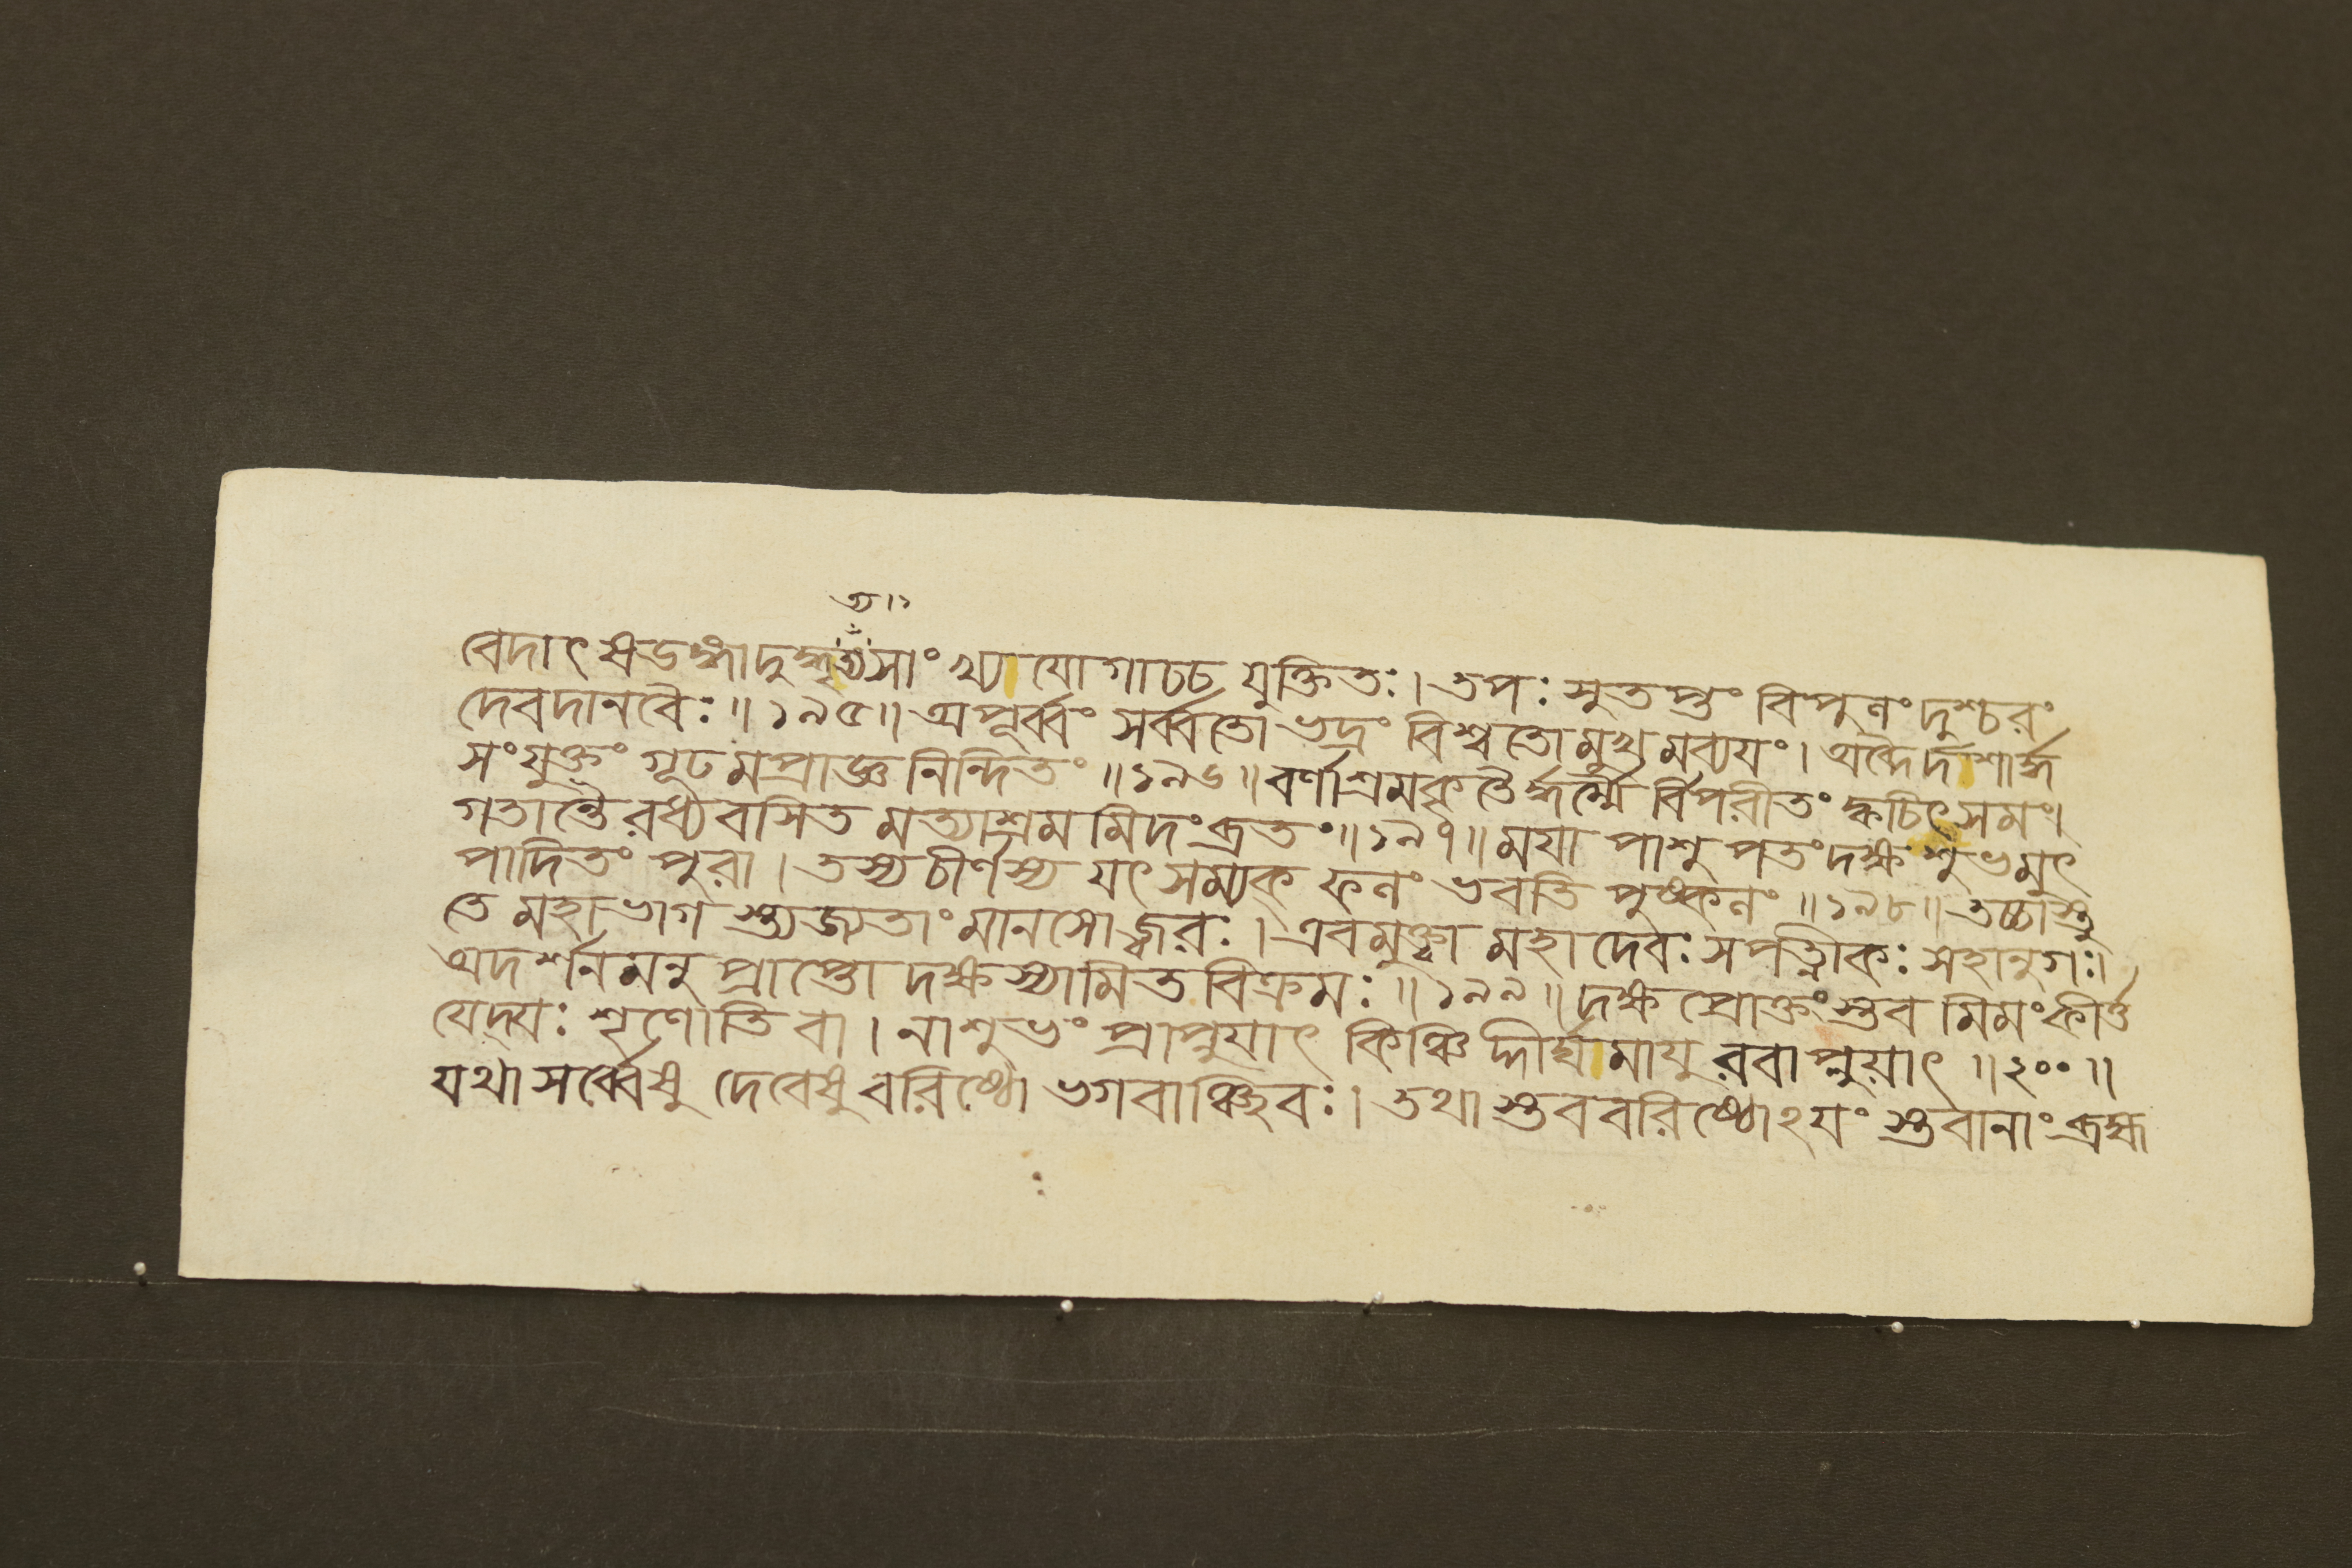 ত্য ১
বেদাৎ ষডঙ্গাদুদ্ধৃত্যসাংখ্যাযোগাচ্চ যুক্তিতঃ। তপঃ সুতপ্তং বিপুলং দুশ্চরং
দেবদানবৈঃ॥ ১৯৫॥ অপূর্ব্বং সর্ব্বতোভদ্রং বিশ্বতোমুখমব্যযং। অব্দৈর্দশার্দ্ধ
সংযুক্তং গূঢমপ্রাজ্ঞনিন্দিতং ॥১৯৬॥ বর্ণাশ্রমকৃতৈর্দ্ধর্ম্মৈর্বিপরীতং ক্বচিৎসমং।
গতান্তৈরধ্যবসিত মত্যাশ্রম মিদংব্রতং॥১৯৭॥ মযা পাশুপতংদক্ষ শুভমুৎ
পাদিতং পুরা। তস্যচীর্ণস্য যৎসম্যক্ ফলং ভবতি পুষ্কলং ॥১৯৮॥ তচ্চাস্তু
তে মহাভাগ স্ত্যজ্যতাং মানসোজ্বরঃ। এবমুক্ত্বা মহাদেবঃ সপত্নীকঃ সহানুগঃ।
অদর্শনমনুপ্রাপ্তো দক্ষস্যামিতবিক্রমঃ॥ ১৯৯॥ দক্ষপ্রোক্তংস্তব মিমংকীর্ত্ত
যেদ্যঃ শৃণোতি বা। নাশুভং প্রাপ্নুযাৎ কিঞ্চিদ্দীর্ঘমাযুরবাপ্নুয়াৎ ॥২০০॥
যথা সর্ব্বেষু দেবেষু বরিষ্ঠো ভগবাঞ্ছিবঃ। তথা স্তববরিষ্ঠোঽযং স্তবানাংব্রহ্ম